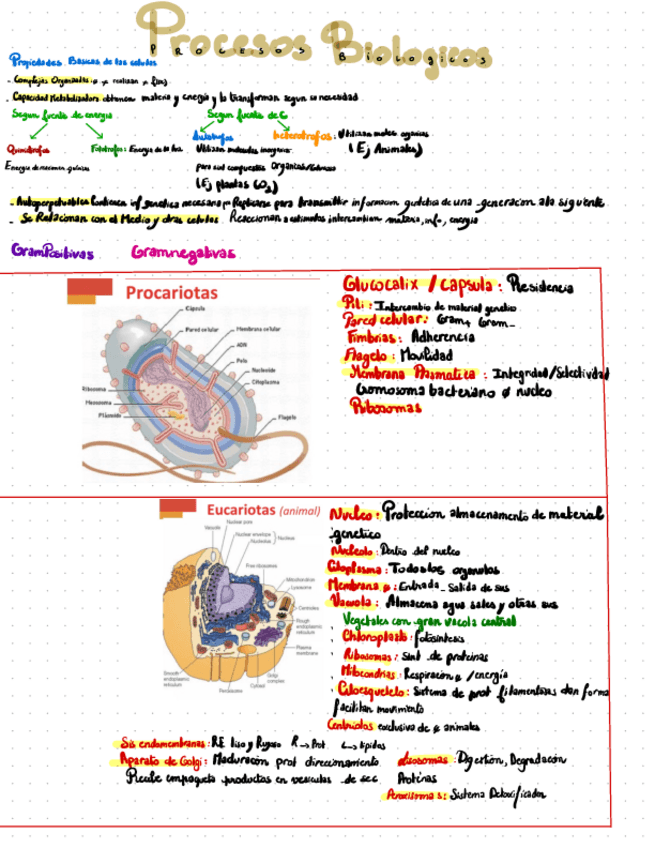 Procesos Biologicos
PROCESOS BIOLOGICOS
Propiedades Basicas de las celulas
- Complejas Organizadas: realizan
- Capacidad Metabolizadora obtienen materia y energia y la transforman segun su necesidad
Segun fuente de energia
Segun fuente de C
Quimiotrofos
Fototrofos: Energia de la luz
Autotrofos
heterotrofos: Utilizan moles organicas
(Ej Animales)
Energia de reacciones quimicas
Utilizan moleculas inorganicas
para sint compuestos Organicos
(Ej plantas CO2)
- Autoperpetuables Contienen inf genetica necesaria Replicarse para transmitir informacion genetica de una generacion a la siguiente
- Se Relacionan con el Medio y otras celulas Reaccionan a estimulos intercambian materia, info, energia
GramPositivas Gramnegativas
Procariotas
Cápsula
Pared celular
Membrana celular
ADN
Pelo
Nucleoide
Citoplasma
Ribosoma
Mesosoma
Plásmido
Flagelo
Glucocalix / capsula: Resistencia
Pili: Intercambio de material genetico
Pared celular: Gram+ Gram-
Fimbrias: Adherencia
Flagelo: Movilidad
Membrana Plasmatica: Integridad/Selectividad
Cromosoma bacteriano ø nucleo
Ribosomas
Eucariotas (animal)
Nuclear pore
Vacuole
Nuclear envelope
Nucleolus
Nucleus
Free ribosomes
Mitochondrion
Lysosome
Centrioles
Rough endoplasmic reticulum
Plasma membrane
Golgi complex
Cytosol
Peroxisome
Smooth endoplasmic reticulum
Nucleo: Proteccion almacenamento de material
genetico
Nucleolo: Dentro del nucleo
Citoplasma: Todos los organelos
Membrana: Entrada - Salida de sus
Vacuola: Almacena agua sales y otras sus
Vegetales con gran vacola central
Chloroplasto: fotosintesis
Ribosomas: Sint de proteinas
Mitocondrias: Respiracion /energía
Citoesqueleto: Sistema de prot filamentosas dan forma
facilitan movimiento
Centriolos exclusiva de animales
Sis endomembranas: RE liso y Rugoso R→Prot L→lipidos
Aparato de Golgi: Maduracion prot direccinamiento
Lisosomas: Digestion, Degradacion
Recibe empaqueta productos en vesiculas de sec
Proteinas
Peroxisomas: Sistema Detoxificador